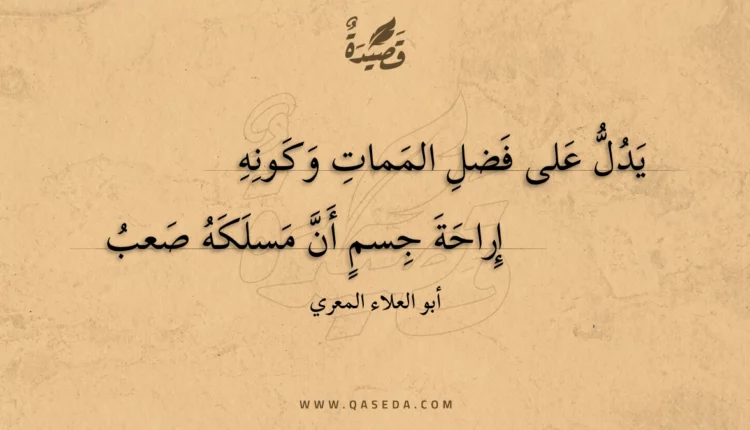 قَصِيدَةٌ
يَدُلُّ عَلى فَضلِ المَماتِ وَكَونِهِ
إِراحَةَ جِسمٍ أَنَّ مَسلَكَهُ صَعبُ
أبو العلاء المعري
WWW.QASEDA.COM